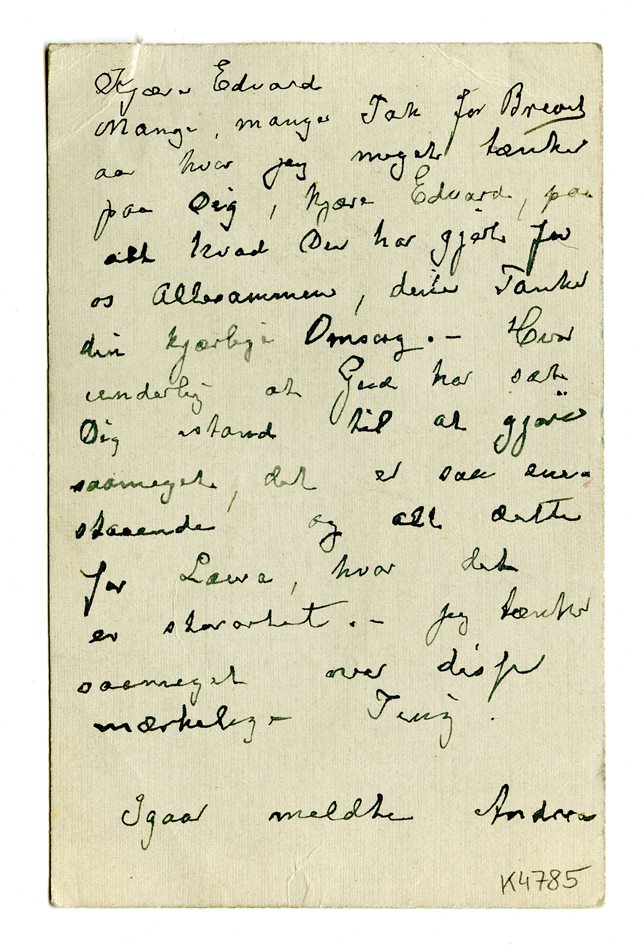 Kjære Edvard
Mange, mange Tak for Brevet
aa hvor jeg meget tænker
paa Dig, kjære Edvard, paa
alt hvad Du har gjort for
os Allesammen, dine Tanker
din kjærlige Omsorg. – Hvor
underlig at Gud har sat
Dig istand til at gjøre
saameget, det er saa ene-
staaende og alt dette
for Laura, hvor det
er storartet. – jeg tænker
saameget over disse
mærkelige Ting.
Igaar meldte Andrea
K4785